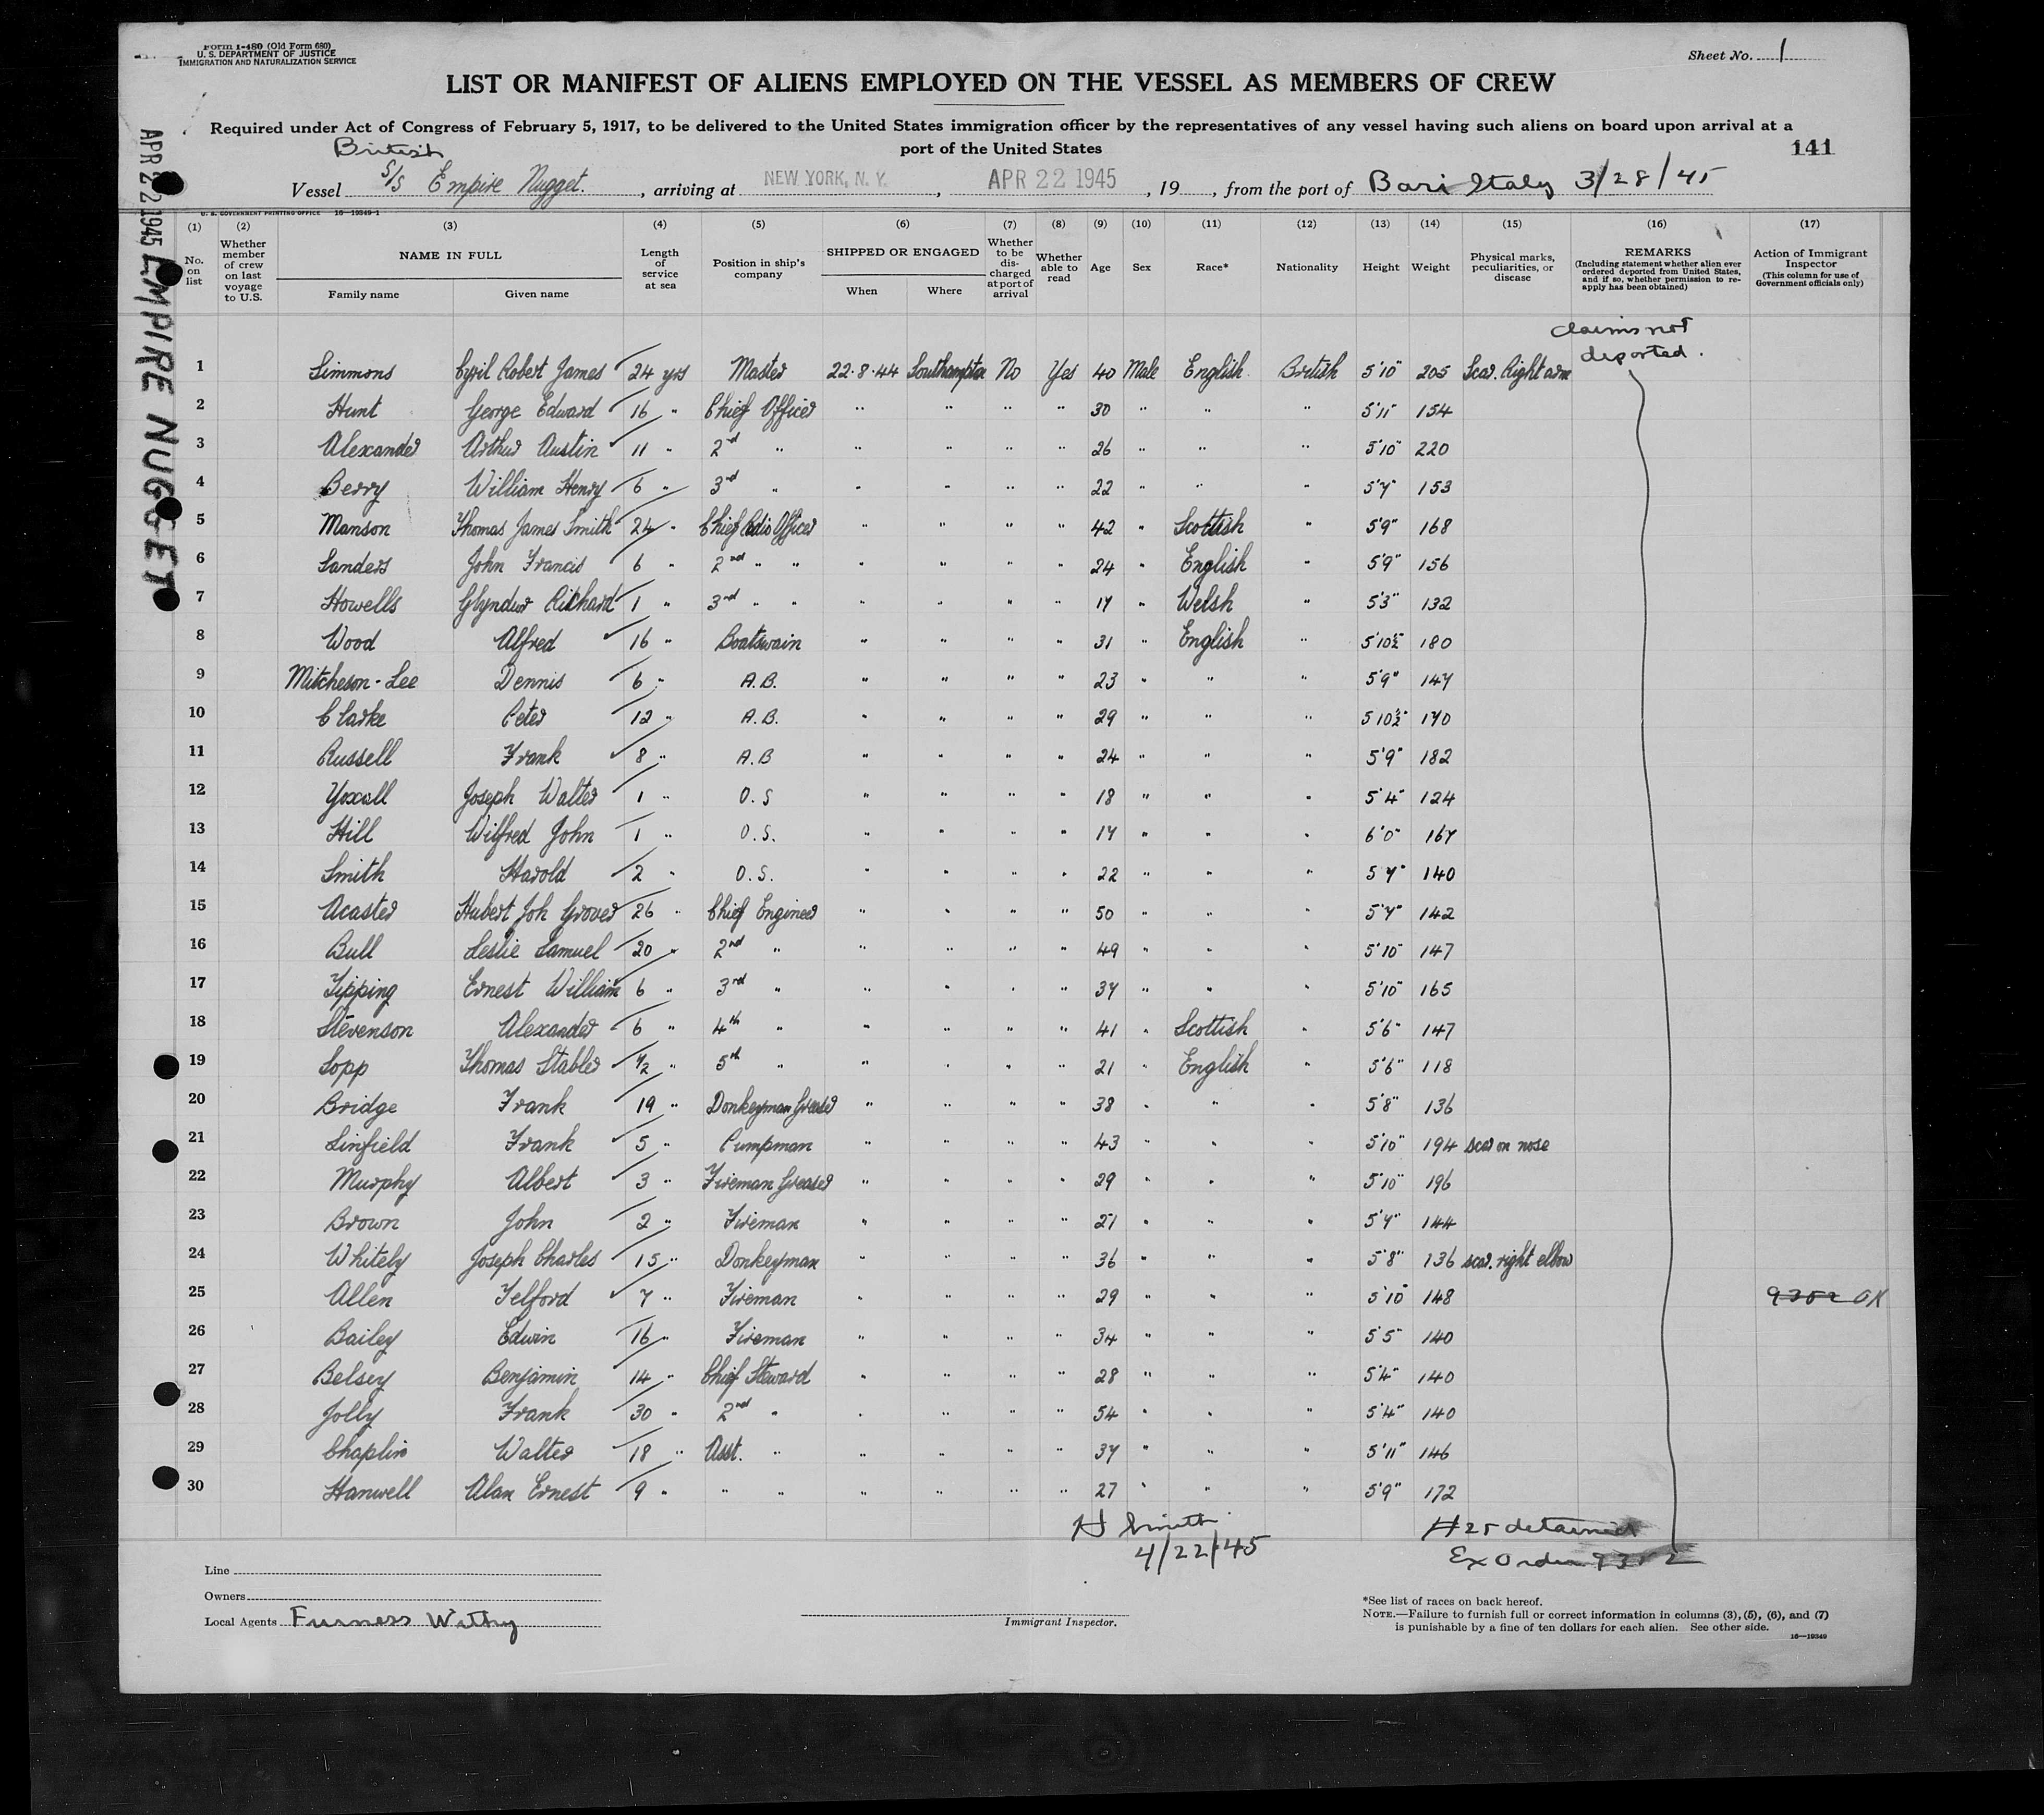 Form I-480 (Old Form 680)
U. S. DEPARTMENT OF JUSTICE
IMMIGRATION AND NATURALIZATION SERVICE
Sheet No. 1
LIST OR MANIFEST OF ALIENS EMPLOYED ON THE VESSEL AS MEMBERS OF CREW
Required under Act of Congress of February 5, 1917, to be delivered to the United States immigration officer by the representatives of any vessel having such aliens on board upon arrival at a
port of the United States
141
British
Vessel S/S Empire Nugget. , arriving at NEW YORK, N. Y. , APR 22 1945 , 19 , from the port of Bari Italy 3/28/45
APR 22 1945 EMPIRE NUGGET
U. S. GOVERNMENT PRINTING OFFICE 16—19349-1
(1) (2) (3) (4) (5) (6) (7) (8) (9) (10) (11) (12) (13) (14) (15) (16) (17)
No. on list
Whether member of crew on last voyage to U.S.
NAME IN FULL
Family name Given name
Length of service at sea
Position in ship's company
SHIPPED OR ENGAGED
When Where
Whether to be discharged at port of arrival
Whether able to read
Age
Sex
Race*
Nationality
Height
Weight
Physical marks, peculiarities, or disease
REMARKS
(Including statement whether alien ever ordered deported from United States, and if so, whether permission to re-apply has been obtained)
Action of Immigrant Inspector
(This column for use of Government officials only)
claims not
deported.
1 Simmons Cyril Robert James 24 yrs Master 22·8·44 Southampton No Yes 40 Male English British 5'10" 205 Scar. Right arm
2 Hunt George Edward 16 " Chief Officer " " " " 30 " " " 5'11" 154
3 Alexander Arthur Austin 11 " 2nd " " " " " 26 " " " 5'10" 220
4 Berry William Henry 6 " 3rd " " " " " 22 " " " 5'7" 153
5 Manson Thomas James Smith 24 " Chief Radio Officer " " " " 42 " Scottish " 5'9" 168
6 Sanders John Francis 6 " 2nd " " " " " " 24 " English " 5'9" 156
7 Howells Glyndwr Richard 1 " 3rd " " " " " " 17 " Welsh " 5'3" 132
8 Wood Alfred 16 " Boatswain " " " " 31 " English " 5'10½" 180
9 Mitcheson-Lee Dennis 6 " A.B. " " " " 23 " " " 5'9" 147
10 Clarke Peter 12 " A.B. " " " " 29 " " " 5'10½" 170
11 Russell Frank 8 " A.B " " " " 24 " " " 5'9" 182
12 Yoxall Joseph Walter 1 " O.S " " " " 18 " " " 5'4" 124
13 Hill Wilfred John 1 " O.S. " " " " 17 " " " 6'0" 167
14 Smith Harold 2 " O.S. " " " " 22 " " " 5'7" 140
15 Acaster Hubert Joh Grover 26 " Chief Engineer " " " " 50 " " " 5'7" 142
16 Bull Leslie Samuel 20 " 2nd " " " " " 49 " " " 5'10" 147
17 Tipping Ernest William 6 " 3rd " " " " " 37 " " " 5'10" 165
18 Stevenson Alexander 6 " 4th " " " " " 41 " Scottish " 5'6" 147
19 Sopp Thomas Stabler ½ " 5th " " " " " 21 " English " 5'6" 118
20 Bridge Frank 19 " Donkeyman Greaser " " " " 38 " " " 5'8" 136
21 Linfield Frank 5 " Pumpman " " " " 43 " " " 5'10" 194 scar on nose
22 Murphy Albert 3 " Fireman Greaser " " " " 29 " " " 5'10" 196
23 Brown John 2 " Fireman " " " " 21 " " " 5'7" 144
24 Whiteby Joseph Charles 15 " Donkeyman " " " " 36 " " " 5'8" 136 scar. right elbow
25 Allen Telford 7 " Fireman " " " " 29 " " " 5'10" 148 9352 OK
26 Bailey Edwin 16 " Fireman " " " " 34 " " " 5'5" 140
27 Belsey Benjamin 14 " Chief Steward " " " " 28 " " " 5'4" 140
28 Jolly Frank 30 " 2nd " " " " " 54 " " " 5'4" 140
29 Chaplin Walter 18 " Asst. " " " " " 37 " " " 5'11" 146
30 Hanwell Alan Ernest 9 " " " " " " " 27 " " " 5'9" 172
H Smith
4/22/45
#25 detained
Ex Order 9352
Line
Owners
Local Agents Furness Withy
Immigrant Inspector.
*See list of races on back hereof.
NOTE.—Failure to furnish full or correct information in columns (3), (5), (6), and (7)
is punishable by a fine of ten dollars for each alien. See other side.
16—19349